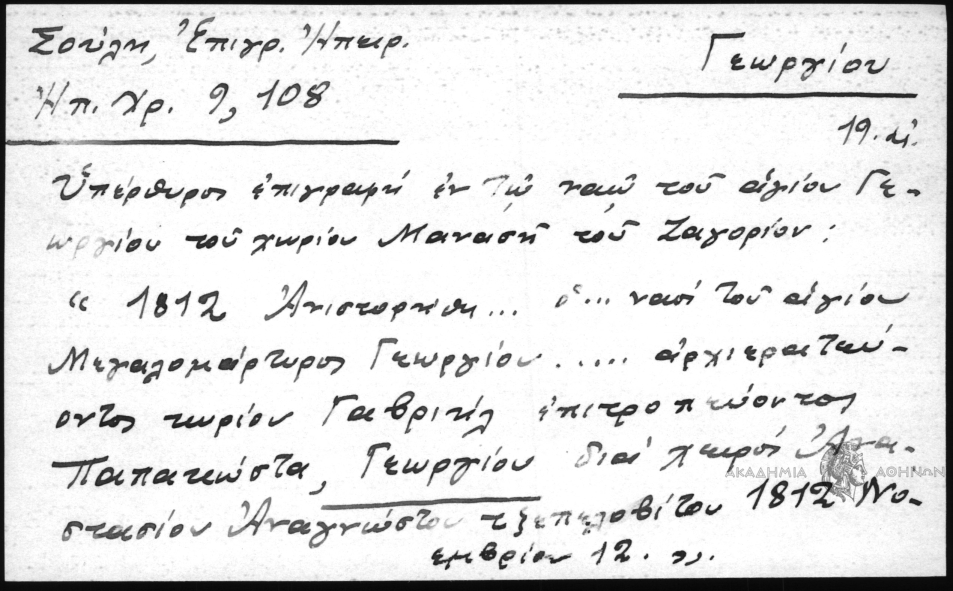 Σούλη, Ἐπιγρ. Ἠπειρ.
Ἠπ. Χρ. 9, 108
Γεωργίου
19. αἰ.
Ὑπέρθυρος ἐπιγραφή ἐν τῷ ναῷ τοῦ ἁγίου Γε-
ωργίου τοῦ χωρίου Μανάσῆ τοῦ Ζαγορίου:
“ 1812 Ἀνιστορήθη... ὁ... ναός τοῦ ἁγίου
Μεγαλομάρτυρος Γεωργίου..... ἀρχιερατεύ-
οντος κυρίου Γαβριήλ ἐπιτροπεύοντος
Παπακώστα, Γεωργίου διά χειρός Ἀνα-
στασίου Ἀναγνώστου 1812 Νο-
εμβρίου 12. ”.
ΑΚΑΔΗΜΙΑ ΑΘΗΝΩΝ